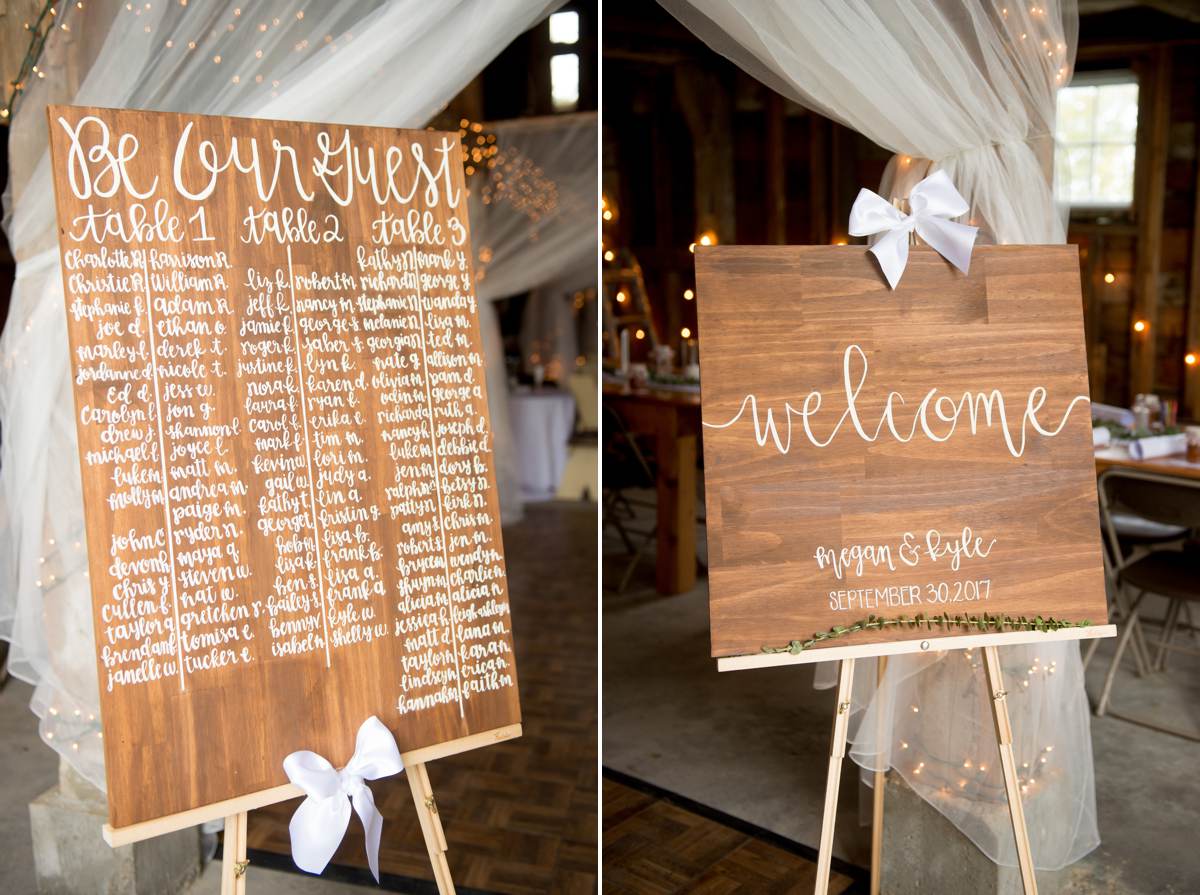 Be Our Guest
table 1
Charlotte R.
Christie R.
stephanie k.
joe d.
marley l.
jordanne d.
Ed d.
Carolyn l.
drew j.
michael l.
luke m.
molly m.
john c.
devon h.
chris y.
cullen f.
taylor a.
brendan k.
janelle w.
harrison R.
William R.
adam R.
ethan o.
derek t.
nicole t.
jess w.
jon g.
shannon l.
joyce l.
matt m.
andrea m.
paige m.
ryder n.
maya q.
steven w.
nat w.
gretchen r.
tomisa e.
tucker e.
table 2
liz k.
jeff k.
jamie k.
roger k.
justine k.
nora k.
laura f.
carol f.
mark f.
kevin w.
gail w.
kathy t.
george t.
bob m.
lisa k.
ben s.
bailey s.
benny v.
isabel n.
robert m.
nancy m.
george s.
saber s.
lyn k.
karen d.
ryan f.
erika c.
tim m.
lori m.
judy a.
lin a.
kristin g.
lisa b.
frank b.
lisa a.
frank a.
kyle w.
shelly w.
table 3
kathy n.
richard n.
stephanie n.
melanie n.
georgia n.
nate g.
olivia m.
odin m.
richard a.
nancy k.
luke m.
jen m.
ralph n.
patty n.
amy s.
robert s.
bryce m.
shym m.
alicia m.
jessica k.
matt d.
taylor h.
lindsey h.
hannah m.
mark y.
george y.
wanda y.
lisa m.
ted m.
allison m.
pam d.
george a.
ruth a.
joseph d.
debbie d.
dory b.
betsy n.
kirk n.
chris m.
jen m.
wendy m.
charlie m.
leigh ashley m.
lana m.
kara m.
eric m.
faith m.
welcome
megan & kyle
SEPTEMBER 30, 2017